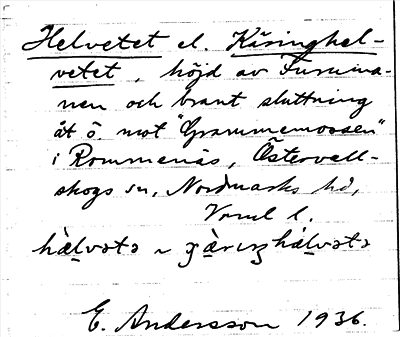 Helvetet el. Käringhel-
vetet, höjd av Furuma-
nen och brant sluttning
åt ö. mot "Grammemossen"
i Rommenäs, Östervall-
skogs sn, Nordmarks hd,
Vrml l.
hæ̀lvətə ~
E. Andersson 1936.